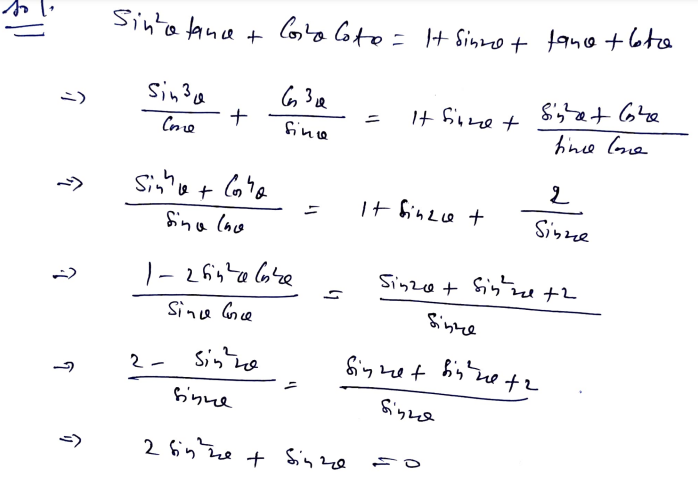 Sol 1.
Sin²θ tanθ + Cos²θ Cotθ = 1 + Sin2θ + tanθ + Cotθ
=> Sin³θ/Cosθ + Cos³θ/Sinθ = 1 + Sin2θ + (Sin²θ + Cos²θ)/(Sinθ Cosθ)
=> (Sin⁴θ + Cos⁴θ)/(Sinθ Cosθ) = 1 + Sin2θ + 2/Sin2θ
=> (1 - 2 Sin²θ Cos²θ)/(Sinθ Cosθ) = (Sin2θ + Sin²2θ + 2)/Sin2θ
=> (2 - Sin²2θ)/Sin2θ = (Sin2θ + Sin²2θ + 2)/Sin2θ
=> 2 Sin²2θ + Sin2θ = 0